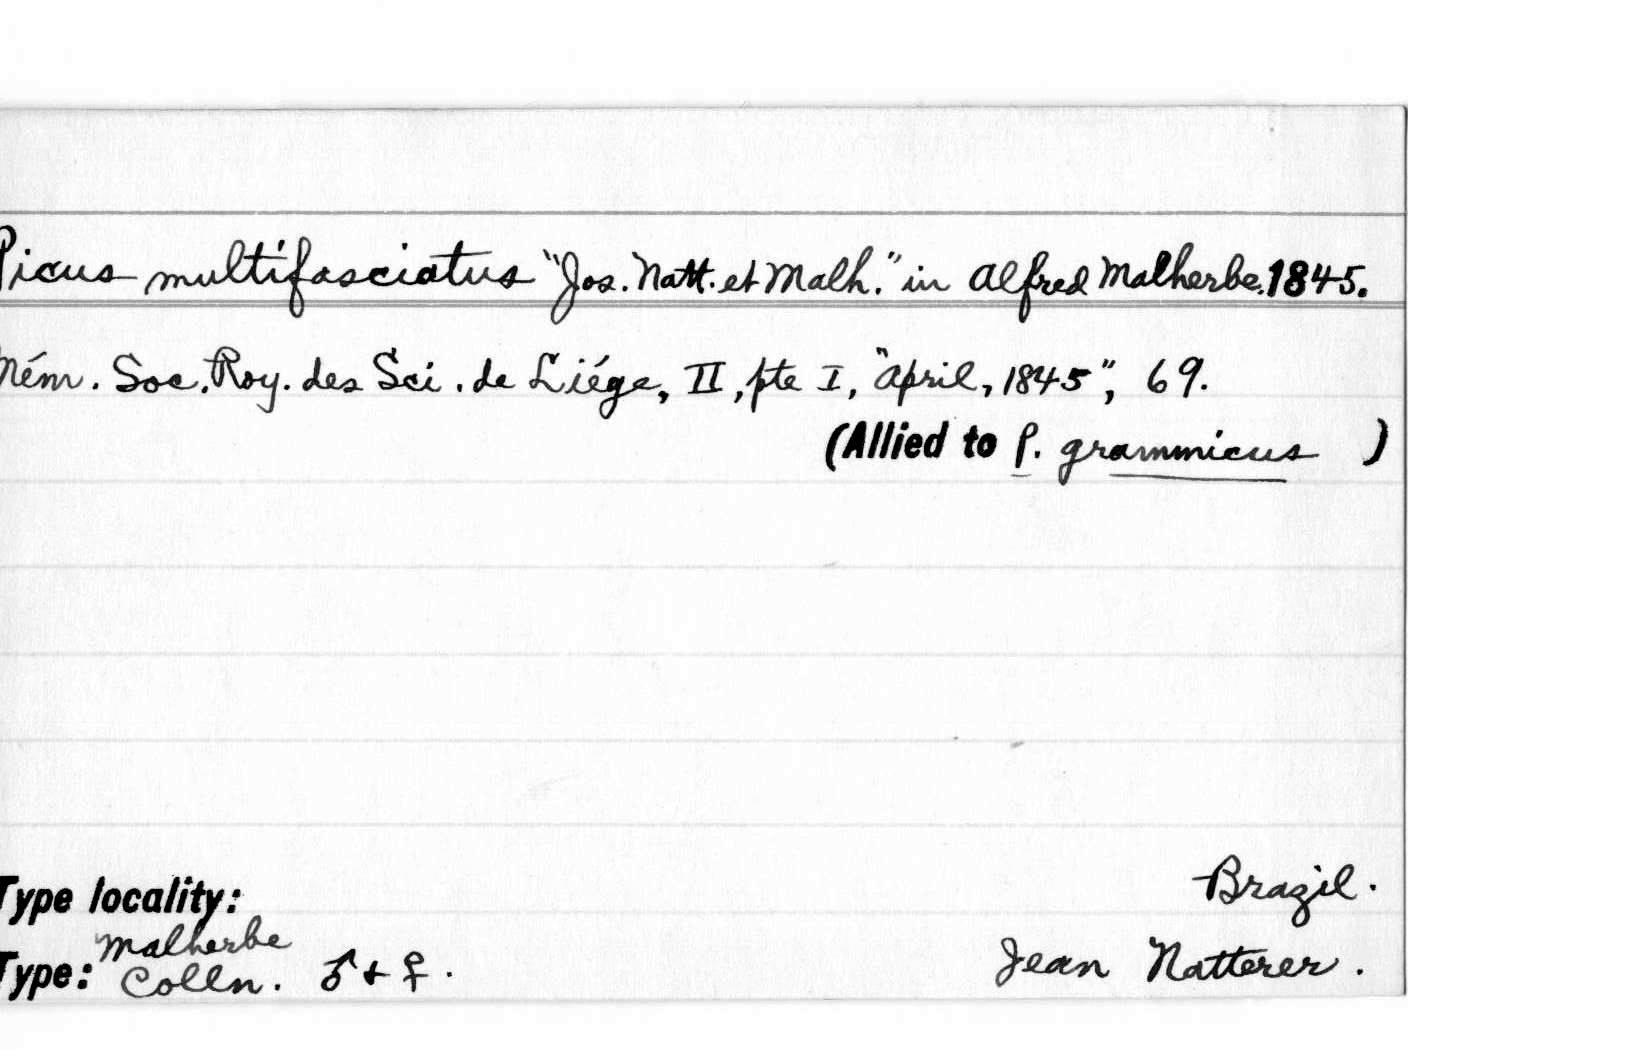 Picus multifasciatus "Jos. Natt. et Malh." in Alfred Malherbe. 1845.
Mém. Soc. Roy. des Sci. de Liége, II, pte I, "April, 1845", 69.
(Allied to P. grammicus )
Type locality: Brazil.
Type: Malherbe Colln. ♂ + ♀. Jean Natterer.